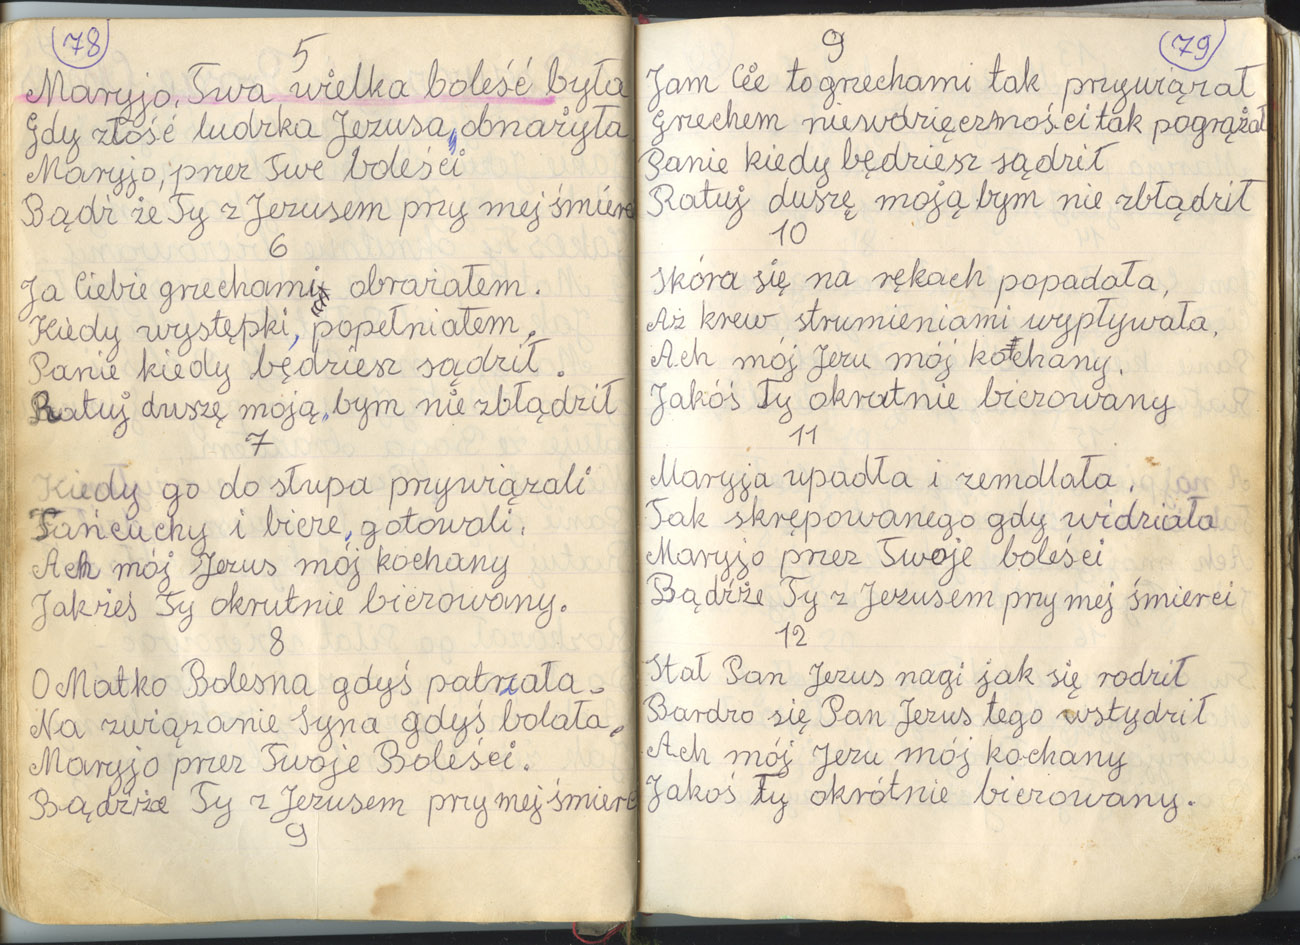 78
5
Maryjo, Twa wielka boleść była
Gdy złość ludzka Jezusa, obnażyła
Maryjo, przez Twe boleści
Bądź że Ty z Jezusem przy mej śmierc
6
Ja Ciebie grzechami obrażałem.
Kiedy występki, popełniałem,
Panie kiedy będziesz sądził.
Ratuj duszę moją, bym nie zbłądził
7
Kiedy go do słupa przywiązali
Łańcuchy i bicze, gotowali.
Ach mój Jezus mój kochany
Jakżeś Ty okrutnie biczowany.
8
O Matko Bolesna gdyś patrzała.
Na związanie Syna gdyś bolała,
Maryjo przez Twoje Boleści.
Bądźże Ty z Jezusem przy mej śmierc
9
79
9
Jam Cię to grzechami tak przywiązał
Grzechem niewdzięczności tak pogrążał
Panie kiedy będziesz sądził
Ratuj duszę moją bym nie zbłądził
10
Skóra się na rękach popadała,
Aż krew strumieniami wypływała,
Ach mój Jezu mój kochany,
Jakóś Ty okrutnie biczowany
11
Maryja upadła i zemdlała,
Tak skrępowanego gdy widziała
Maryjo przez Twoje boleści
Bądźże Ty z Jezusem przy mej śmierci
12
Stał Pan Jezus nagi jak się rodził
Bardzo się Pan Jezus tego wstydził
Ach mój Jezu mój kochany
Jakoś ty okrótnie biczowany.